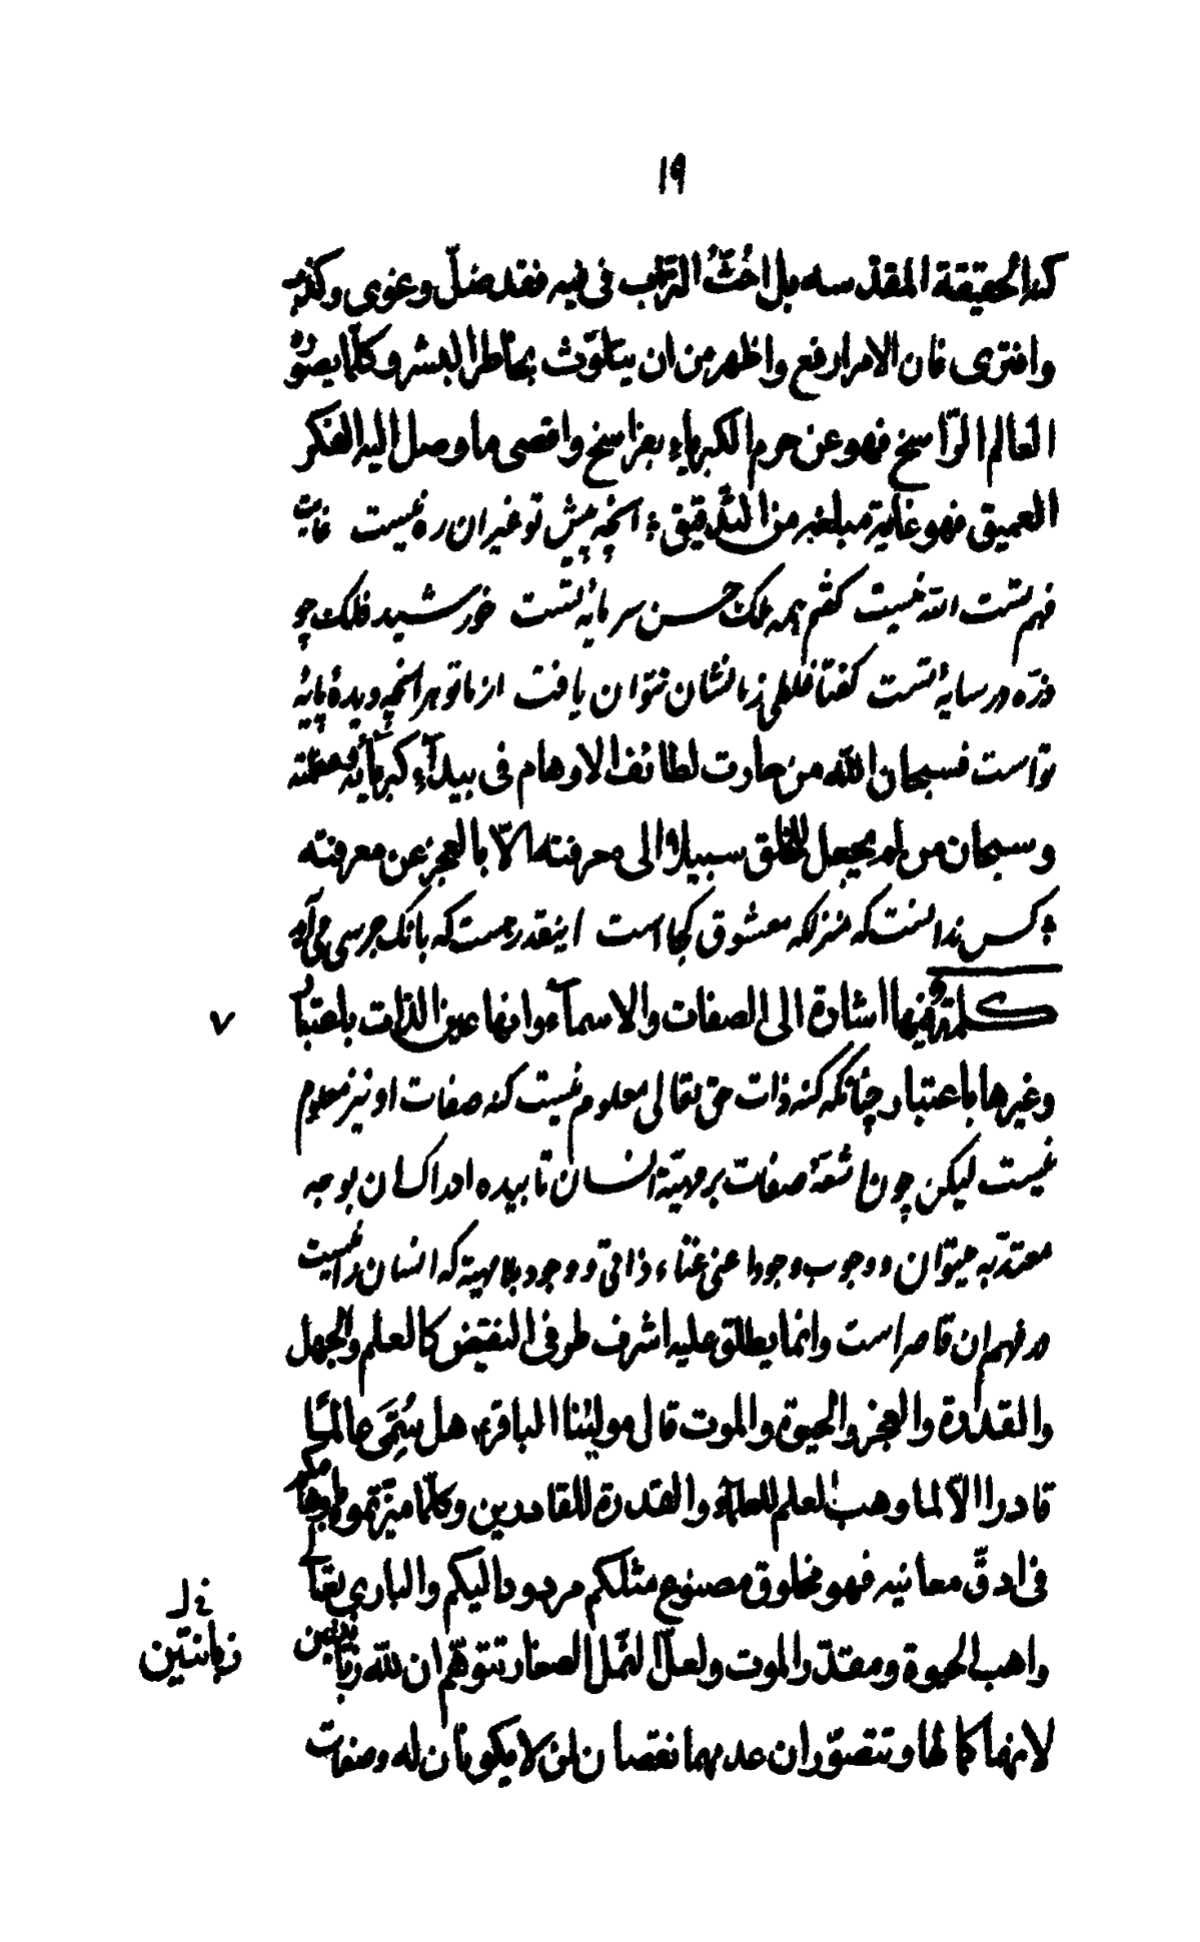 ١٩
كنه الحقيقة المقدّسه بل احثُ التراب فى فيه فقد ضلّ وغوى وكذب
وافترى فان الامر ارفع واظهر من ان يتلوّث بخاطر البشر وكلّما يصوّرُ
العالم الرّاسخ فهو عن حرم الكبرياء بفراسخ واقصى ما وصل اليه الفكر
العميق فهو غاية مبلغه من التّدقيق ؛ انچه پيش تو غير ان ره نيست غايت
فهم تست الله نيست گفتم همه ملك حسن سرمايۀ تست خورشيد فلك چو
ذرّه در سايۀ تست گفتا غلطى ز ما نشان نتوان يافت از ما تو هر انچه ديدۀ پايۀ
تواست فسبحان اللّه من حارت لطائف الاوهام فى بيدآء كبريائه وعظمته
وسبحان من لم يجعل للخلق سبيلا الى معرفته الاّ بالعجز عن معرفته
؛ كس ندانست كه منزلكه معشوق كجاست اينقدر هست كه بانك جرسى مى آيد
كلمة فيها اشارة الى الصفات والاسمآء وانها عين الذات باعتبار
٧
وغيرها باعتبار چنانكه كنه ذات حق تعالى معلوم نيست كنه صفات او نيز معلوم
نيست ليكن چون اشعّۀ صفات بر مهيّة انسان تابيده ادراك ان بوجه
معتدّ به ميتوان ووجوب وجود اعنى غناء ذاتى ووجود بلا مهية كه انسان را نيست
در فهم ان قاصر است وانما يطلق عليه اشرف طرفى النقيض كالعلم والجهل
والقدرة والعجز والحيوة والموت قال مولينا الباقر هل سُمِّىَ عالمًا
قادرا الاّ لما وهب العلم للعلمآء والقدرة للقادرين وكلّما ميّزتموه باوهامكم
فى ادقّ معانيه فهو مخلوق مصنوع مثلكم مردود اليكم والبارى تعآ
واهب الحيوة ومقدّر الموت ولعلّ النّمل الصغار تتوهّم ان للّه زبانيين
خ ل
زبانتين
لانهما كمالها وتتصوّر ان عدمهما نقصان لمن لا يكونان له وصفات